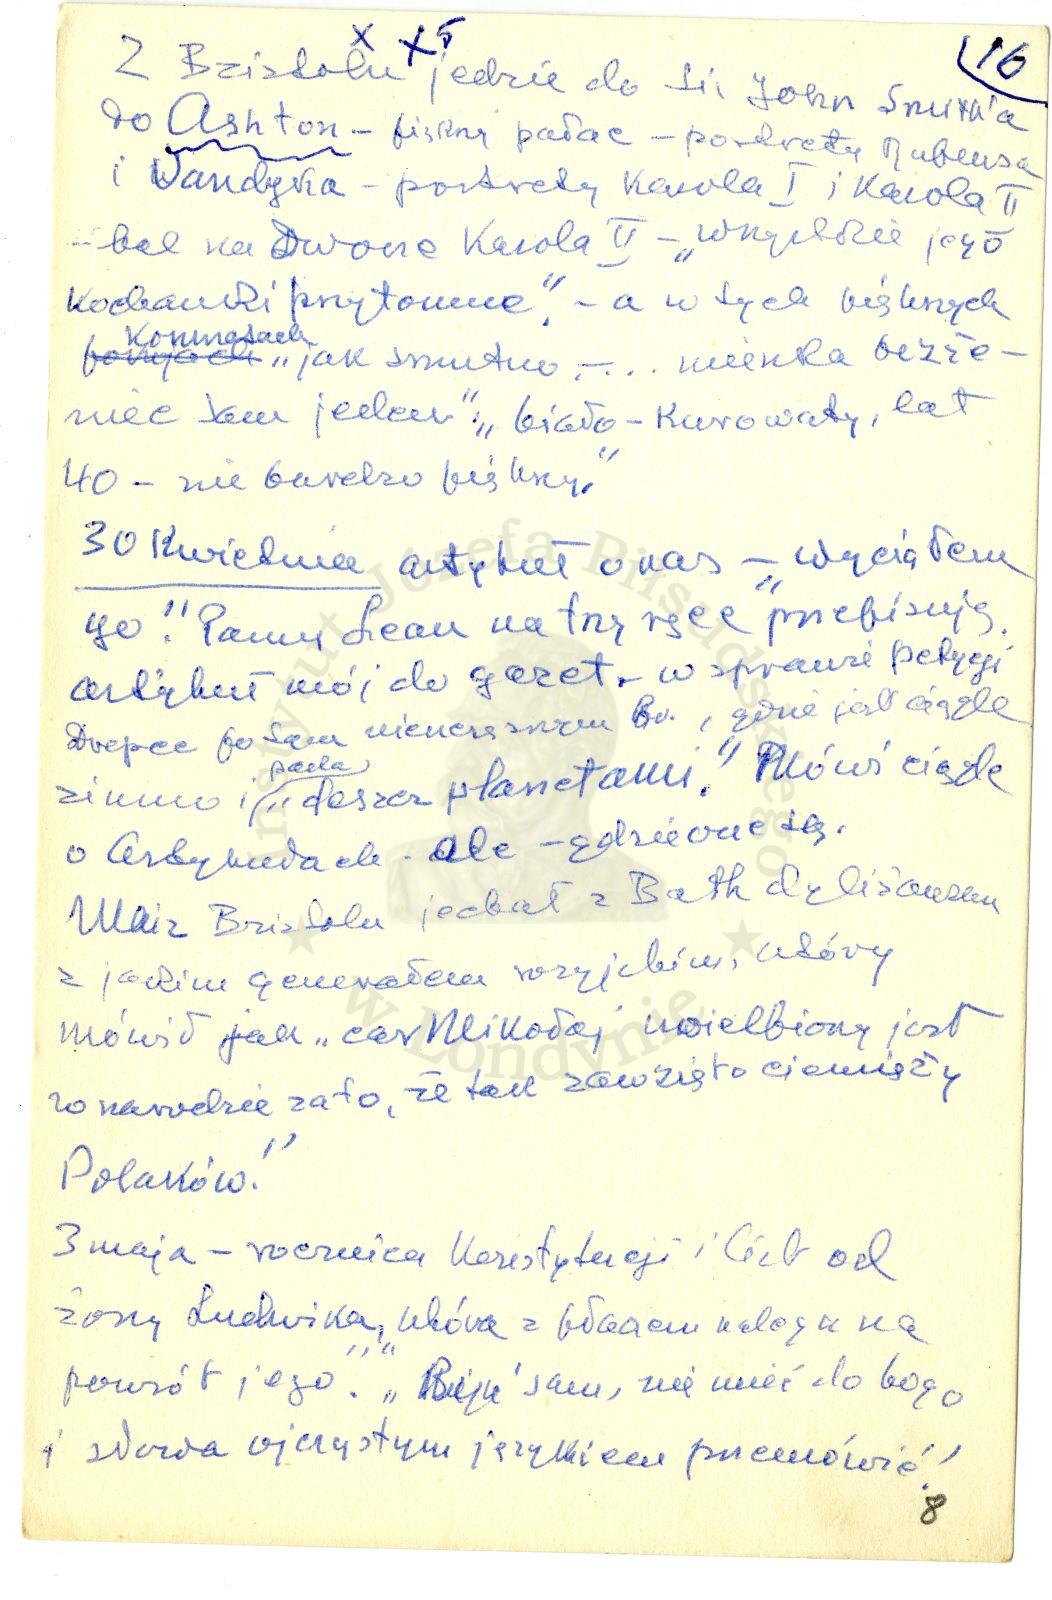 16
x x5
Z Bristolu jedzie do Sir John Smith'a
do Ashton – piękny pałac – portrety Rubensa
i Vandyka – portrety Karola I i Karola II
– bal na Dworze Karola II – „wszystkie jego
kochanki przytomne". – a w tych pięknych
komnatach
pokojach „jak smutno – ... mieszka bezże-
niec sam jeden". „biało-kurowaty, lat
40 – nie bardzo piękny."
30 Kwietnia artykuł o nas – „wyciąłem
go". Panny Lean na trzy ręce "przepisują
artykuł mój do gazet. – w sprawie petycji
Drepce po tem nieznośnem , gdzie jest ciągle
pada
zimno i „deszcz planetami." Mówi ciągle
o Artykułach – ale – gdzie one są.
Bristolu jechał z Bath dyliżansem
z jakim generałem rosyjskim, który
mówił jak „car Mikołaj uwielbiony jest
w narodzie za to, że tak zawzięto ciemięży
Polaków."
3 maja – rocznica Konstytucji i list od
żony Ludwika, która z płaczem nalega na
powrót jego". „Być sam, nie mieć do kogo
i słowa ojczystym językiem przemówić!"
8
Instytut Józefa Piłsudskiego
w Londynie